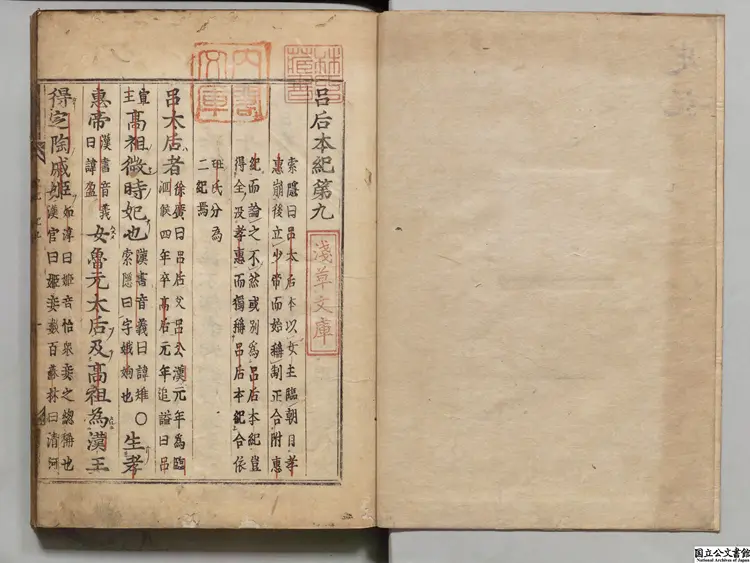 呂后本紀第九
索隱曰呂太后本以女主臨朝自孝
惠崩後立少帝而始稱制正合附惠
紀而論之不然或別為呂后本紀豈
得全没孝惠而獨稱呂后本紀合依
班氏分為
二紀焉
呂太后者徐廣曰呂后父呂公漢元年為臨
泗侯四年卒高后元年追謚曰呂
宣王高祖微時妃也漢書音義曰諱雉○索隱曰字娥姁也生孝
惠帝漢書音義曰諱盈女魯元太后及高祖為漢王
得定陶戚姬如淳曰姬音怡衆妾之總稱也
漢官曰姬妾數百蘇林曰清河
林氏藏書
淺草文庫
国立公文書館
National Archives of Japan